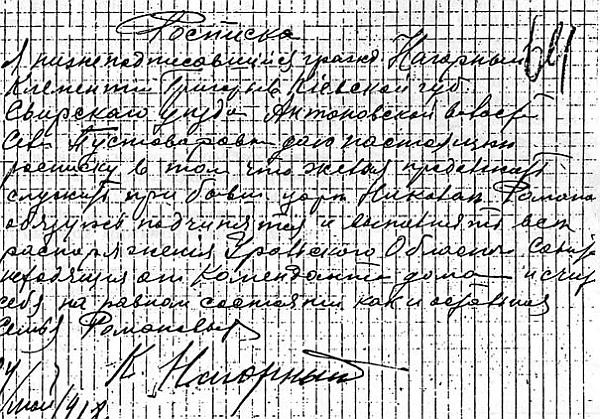 Росписка
Я нижеподписовшийся гражд Нагорный
Климентий Григорьев Киевской губ.
Свирского уезда Антоновской волости
Села Пустоварова даю настоящую
росписку в том что желая продолжать
служить при бывш царе Николае Романо
обязуюсь подчинятся и выполнять все
распоряжения Уральского Областн Совде
исходящия от Коменданта дома и счит
себя на равном состоянии как и остальная
семья Романовых
К. Нагорный